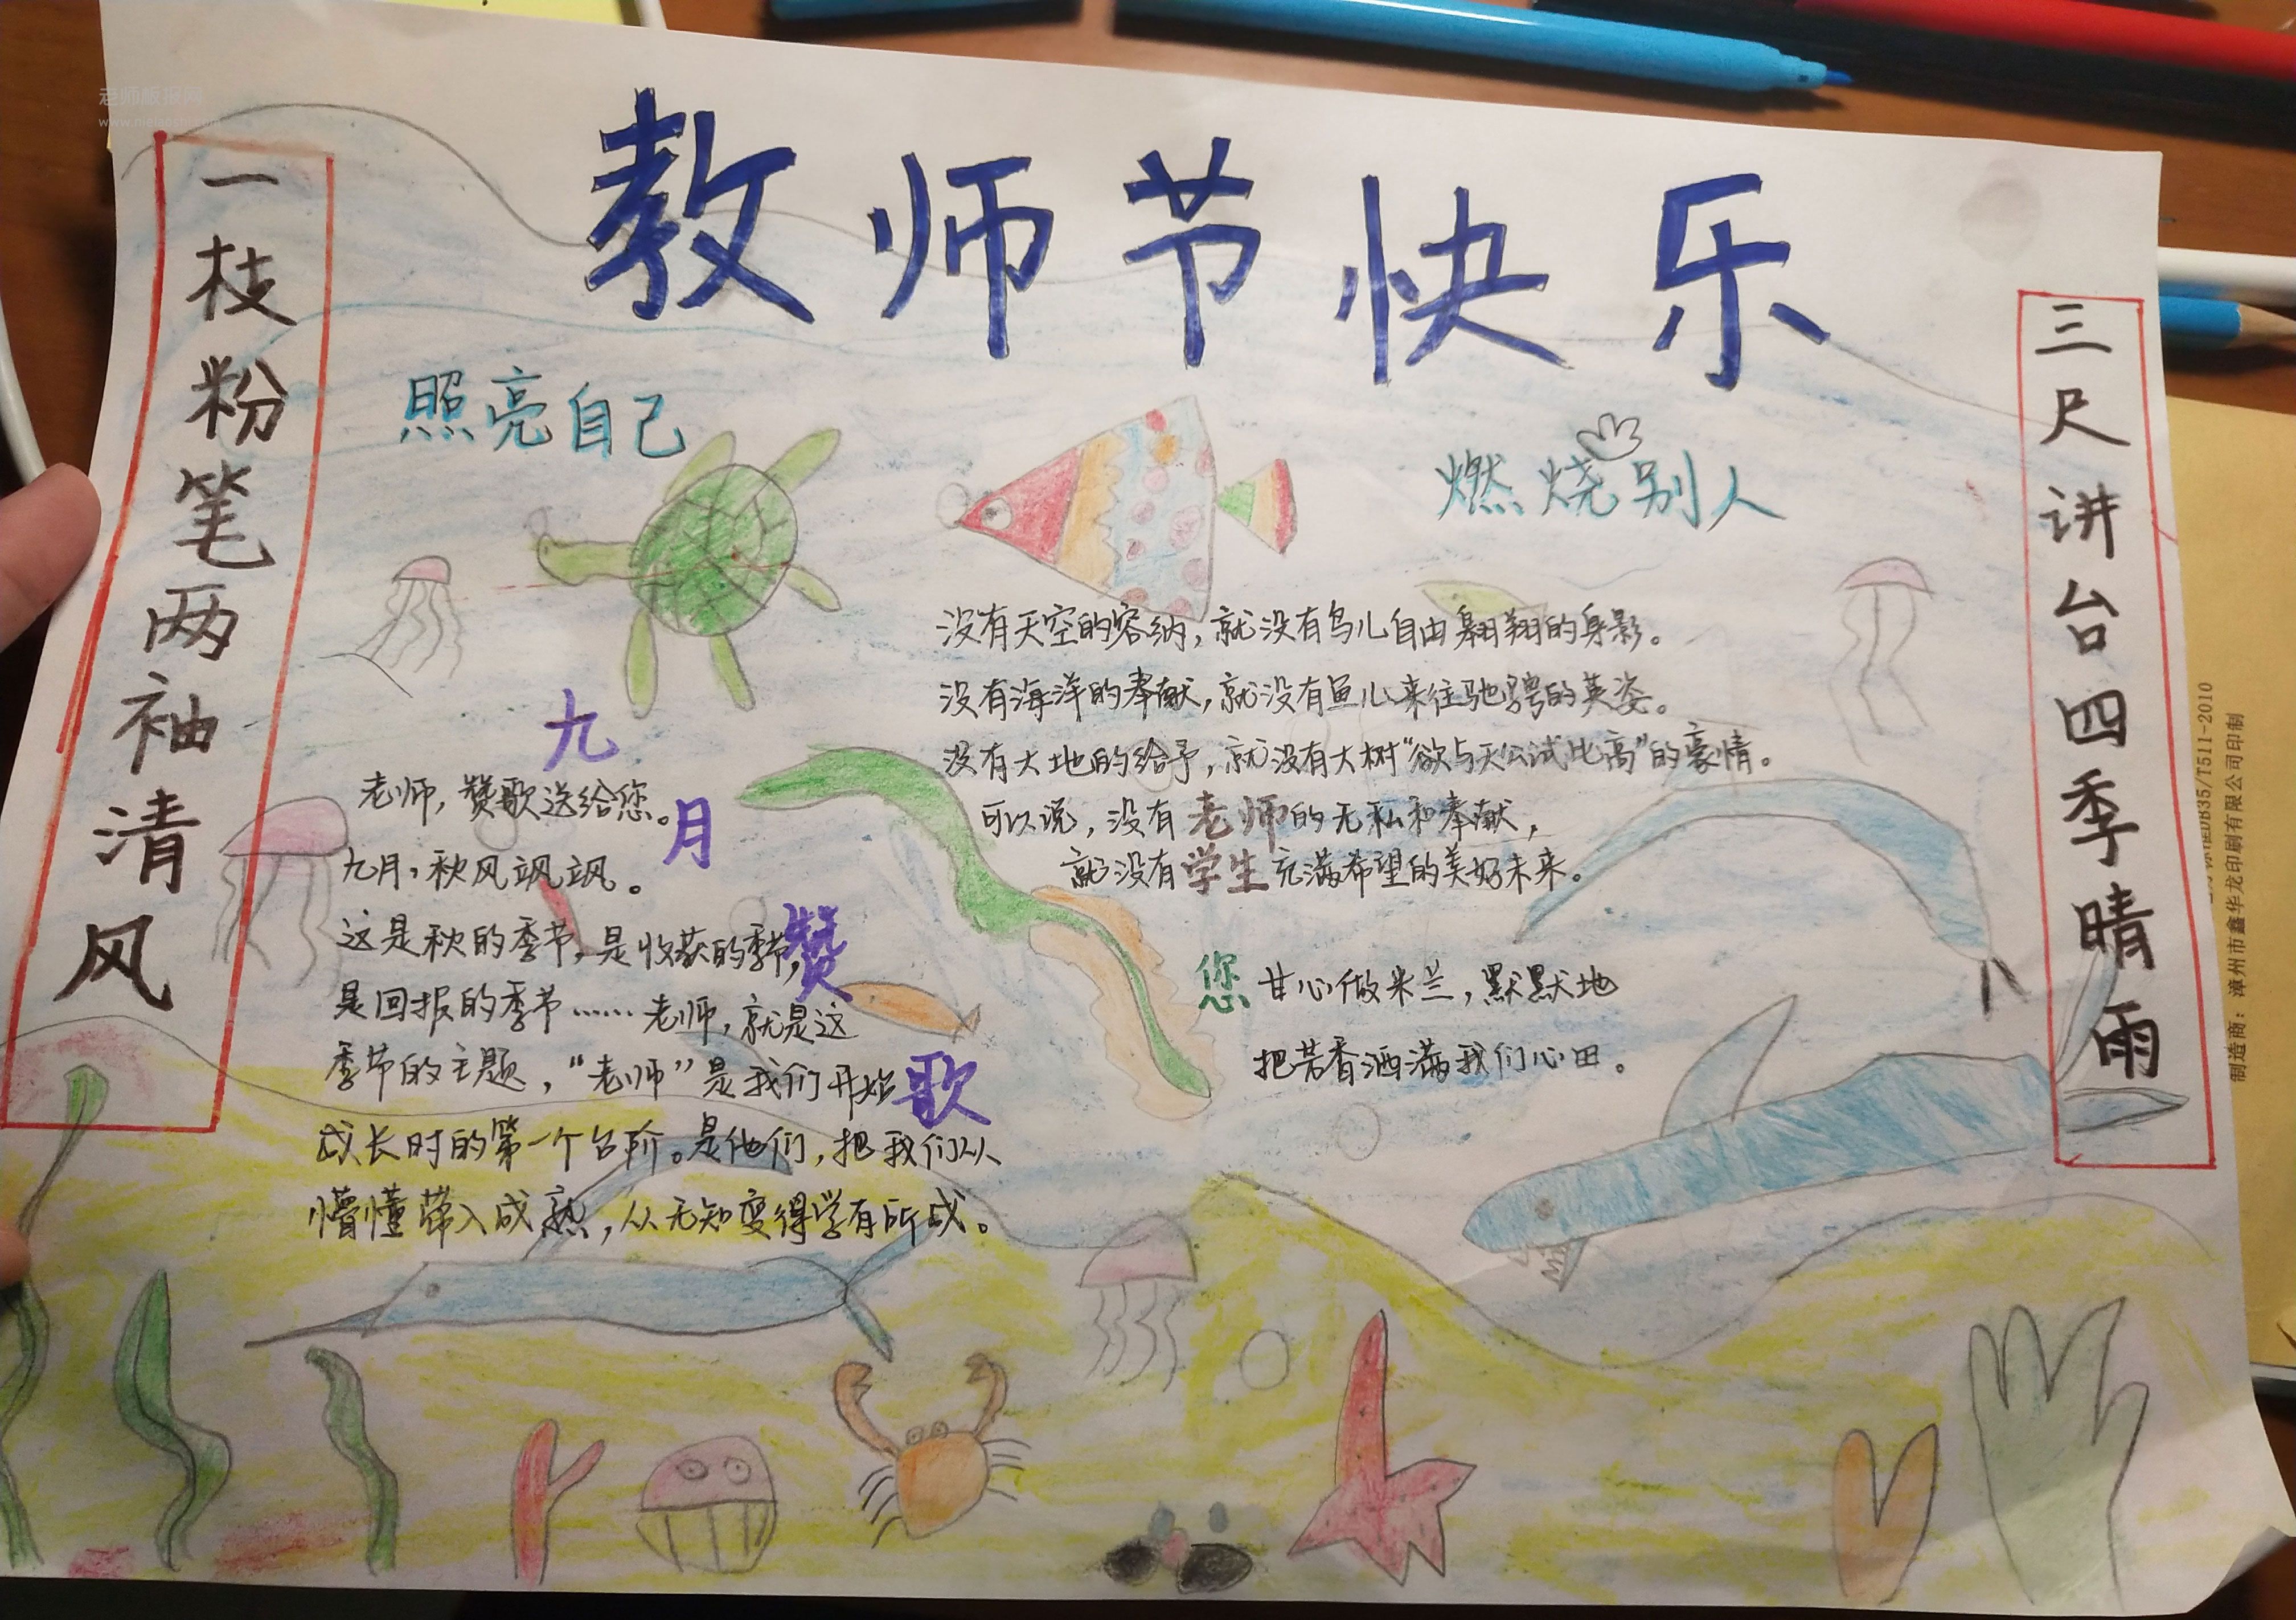 教师节快乐
一枝粉笔两袖清风
三尺讲台四季晴雨
照亮自己
燃烧别人
九月赞歌
老师，赞歌送给您。
九月，秋风飒飒。
这是秋的季节，是收获的季节，
是回报的季节……老师，就是这
季节的主题，“老师”是我们开始
成长时的第一个台阶。是他们，把我们从
懵懂带入成熟，从无知变得学有所成。
没有天空的容纳，就没有鸟儿自由翱翔的身影。
没有海洋的奉献，就没有鱼儿来往驰骋的英姿。
没有大地的给予，就没有大树“欲与天公试比高”的豪情。
可以说，没有老师的无私和奉献，
就没有学生充满希望的美好未来。
您甘心做米兰，默默地
把芳香洒满我们心田。
老师板报网
DB35/T511-2010
制造商：漳州市鑫华龙印刷有限公司印制